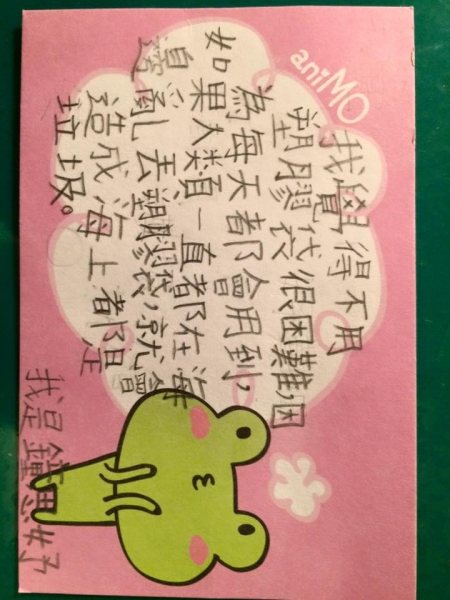 aniMO
我覺得不用
塑膠袋很困難,因
為每天都會用到,
如果人類一直都在海
邊亂丟塑膠袋,就會
造成海上都是
垃圾。
我是鐘思妤